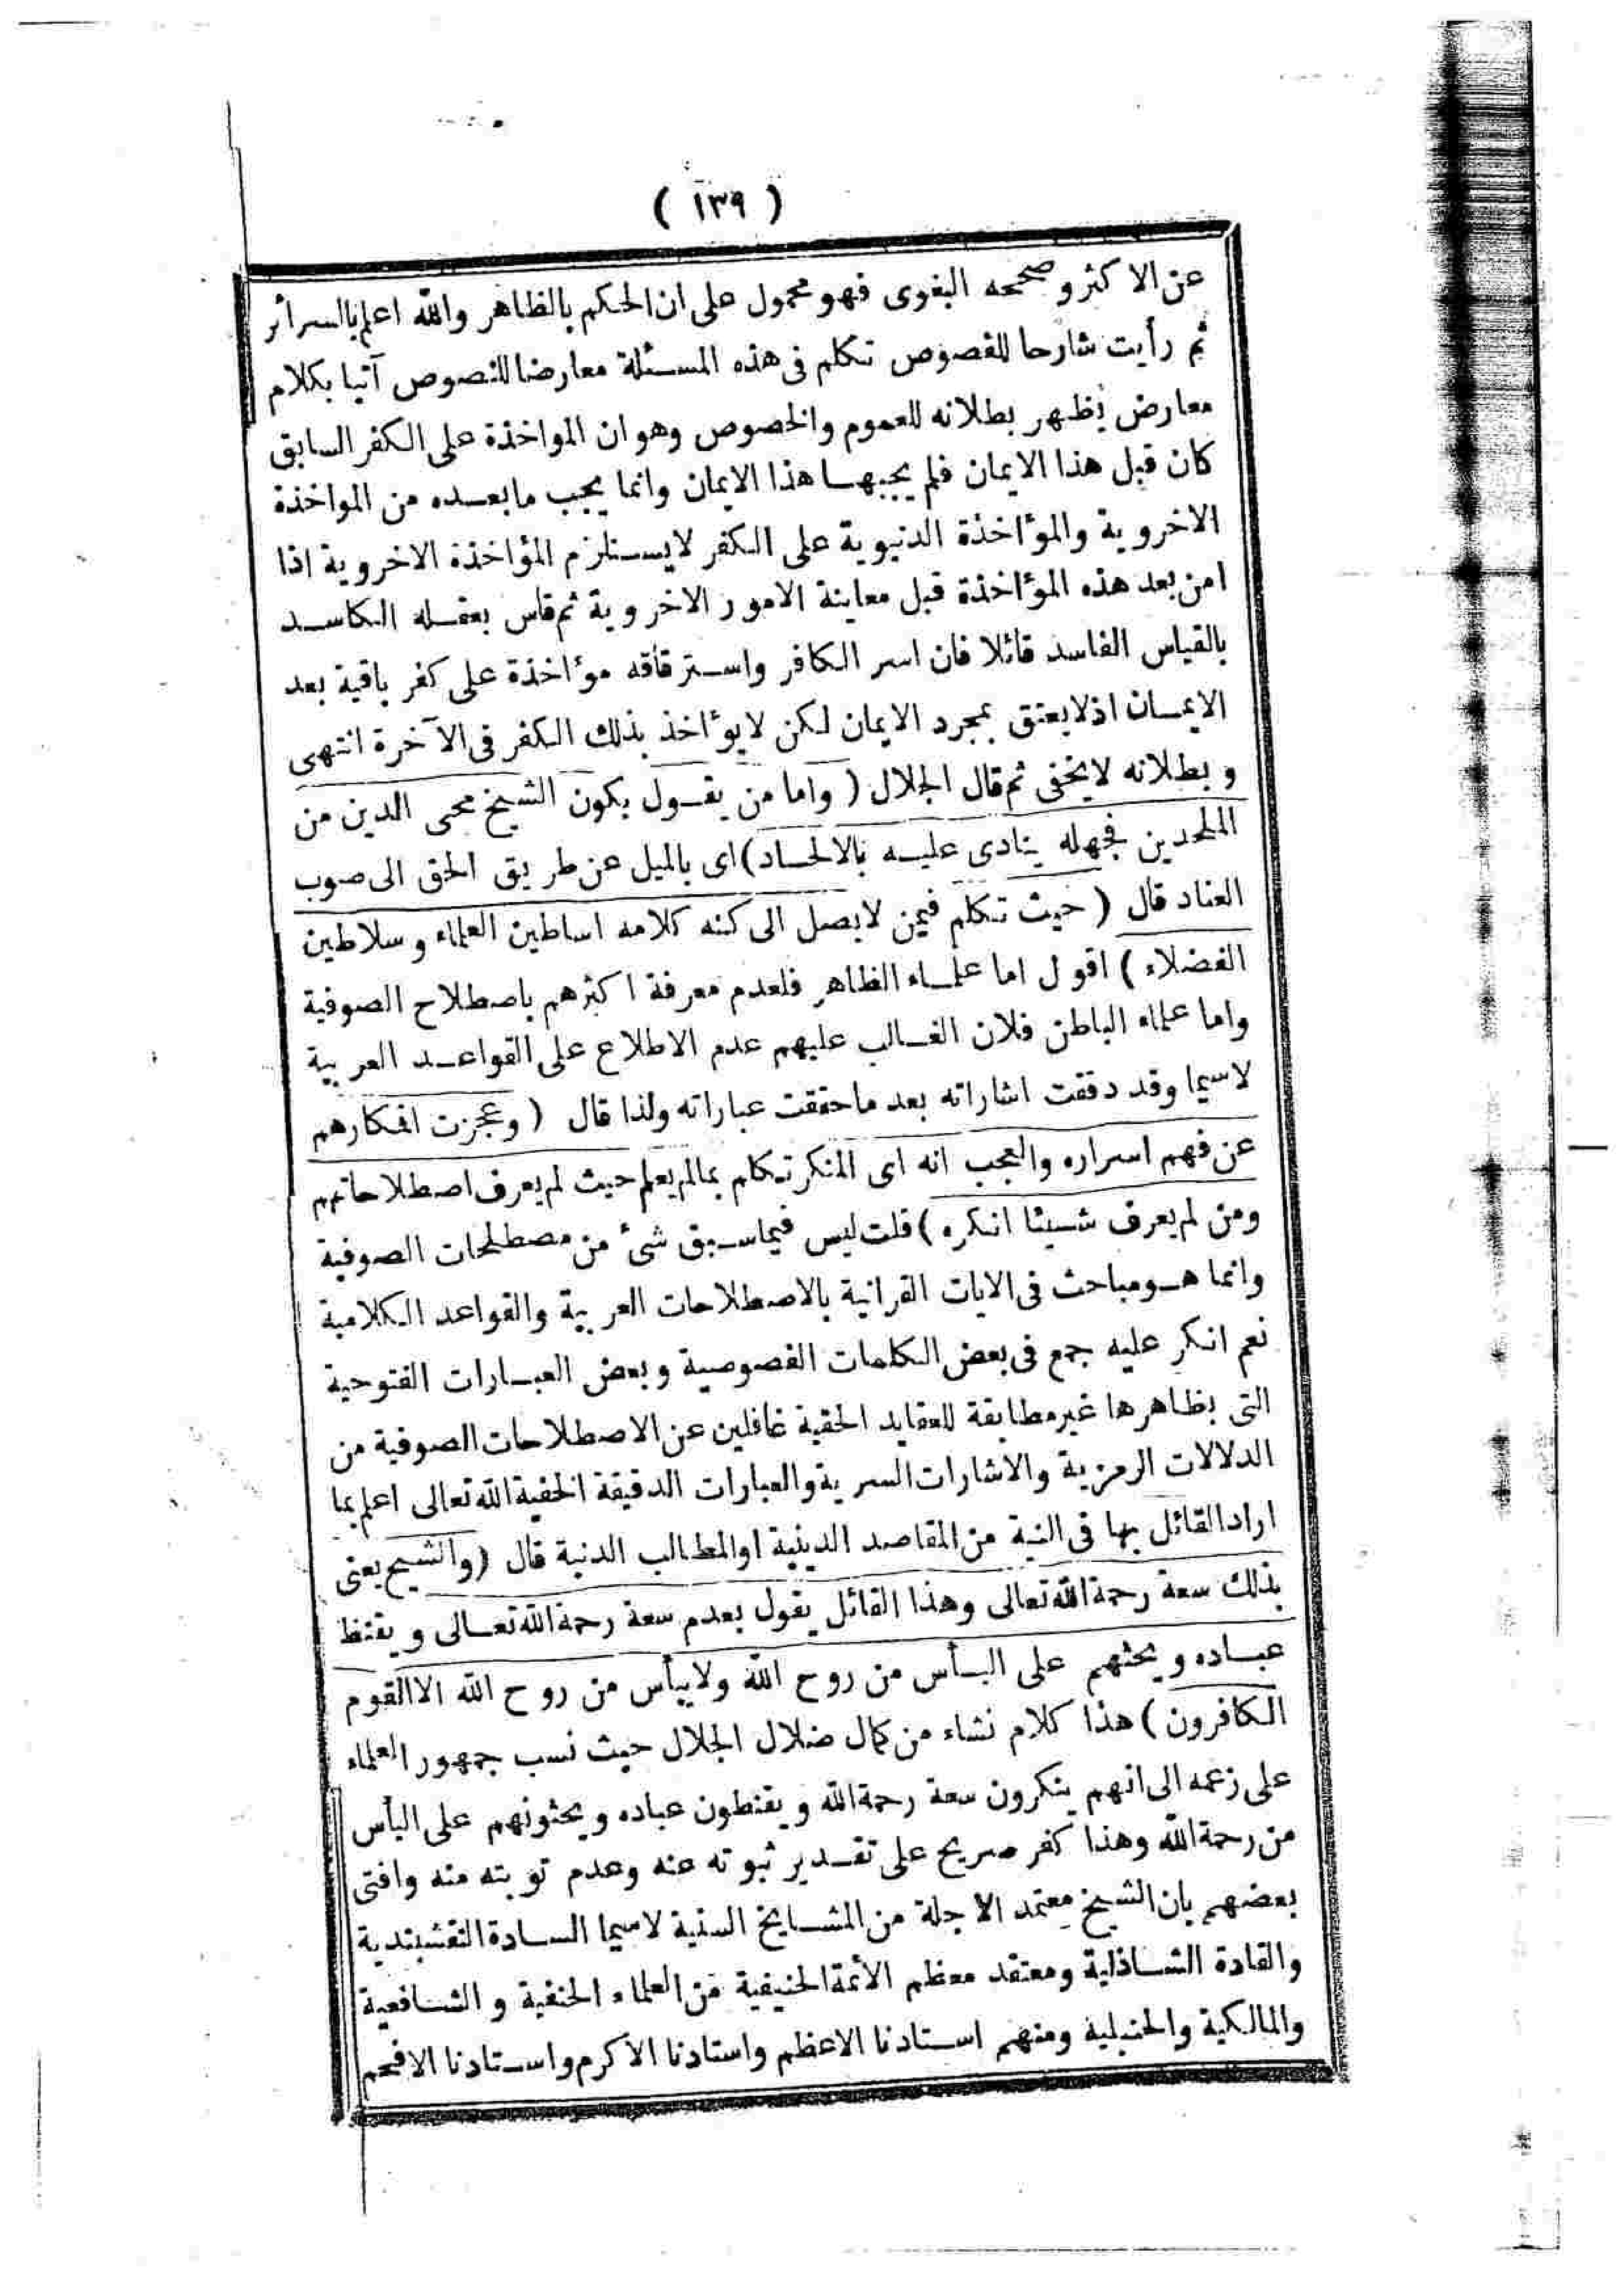 ( ١٣٩ )
عن الاكثر وصححه البغوى فهو محمول على ان الحكم بالظاهر والله اعلم بالسرائر
ثم رأيت شارحا للفصوص تكلم فى هذه المسئلة معارضا للنصوص آتيا بكلام
معارض يظهر بطلانه للعموم والخصوص وهو ان المواخذة على الكفر السابق
كان قبل هذا الايمان فلم يجبها هذا الايمان وانما يجب ما بعده من المواخذة
الاخروية والمؤاخذة الدنيوية على الكفر لا يستلزم المؤاخذة الاخروية اذا
امن بعد هذه المؤاخذة قبل معاينة الامور الاخروية ثم قاس بعقله الكاسد
بالقياس الفاسد قائلا فان اسر الكافر واسترقاقه مؤاخذة على كفر باقية بعد
الايمان اذ لا يعتق بمجرد الايمان لكن لا يؤاخذ بذلك الكفر فى الآخرة انتهى
وبطلانه لا يخفى ثم قال الجلال ( واما من يقول بكون الشيخ محى الدين من
الملحدين فجهله ينادى عليه بالالحاد ) اى بالميل عن طريق الحق الى صوب
العناد قال ( حيث تكلم فيمن لا يصل الى كنه كلامه اساطين العلماء وسلاطين
الفضلاء ) اقول اما علماء الظاهر فلعدم معرفة اكثرهم باصطلاح الصوفية
واما علماء الباطن فلان الغالب عليهم عدم الاطلاع على القواعد العربية
لاسيما وقد دققت اشاراته بعد ما حققت عباراته ولذا قال ( وعجزت افكارهم
عن فهم اسراره والعجب انه اى المنكر تكلم بمالم يعلم حيث لم يعرف اصطلاحاتهم
ومن لم يعرف شيئا انكره ) قلت ليس فيما سبق شئ من مصطلحات الصوفية
وانما هو مباحث فى الايات القرانية بالاصطلاحات العربية والقواعد الكلامية
نعم انكر عليه جمع فى بعض الكلمات الفصوصية وبعض العبارات الفتوحية
التى بظاهرها غير مطابقة للعقايد الحقية غافلين عن الاصطلاحات الصوفية من
الدلالات الرمزية والاشارات السرية والعبارات الدقيقة الخفية الله تعالى اعلم بما
اراد القائل بها فى النية من المقاصد الدينية او المطالب الدنية قال ( والشيخ يعنى
بذلك سعة رحمة الله تعالى وهذا القائل يقول بعدم سعة رحمة الله تعالى ويقنط
عباده ويحثهم على اليأس من روح الله ولا ييأس من روح الله الا القوم
الكافرون ) هذا كلام نشاء من كمال ضلال الجلال حيث نسب جمهور العلماء
على زعمه الى انهم ينكرون سعة رحمة الله ويقنطون عباده ويحثونهم على اليأس
من رحمة الله وهذا كفر صريح على تقدير ثبوته عنه وعدم توبته منه وافتى
بعضهم بان الشيخ معتمد الاجلة من المشايخ السنية لاسيما السادة النقشبندية
والقادة الشاذلية ومعتقد معظم الأئمة الحنيفية من العلماء الحنفية والشافعية
والمالكية والحنبلية ومنهم استادنا الاعظم واستادنا الاكرم واستادنا الافخم